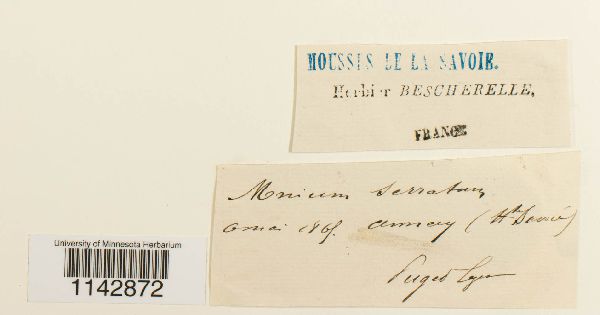 MOUSSES DE LA SAVOIE.
Herbier BESCHERELLE,
FRANCE
Mnium serratum
mai 186. annecy (Hte Savoie)
Puget
University of Minnesota Herbarium
1142872